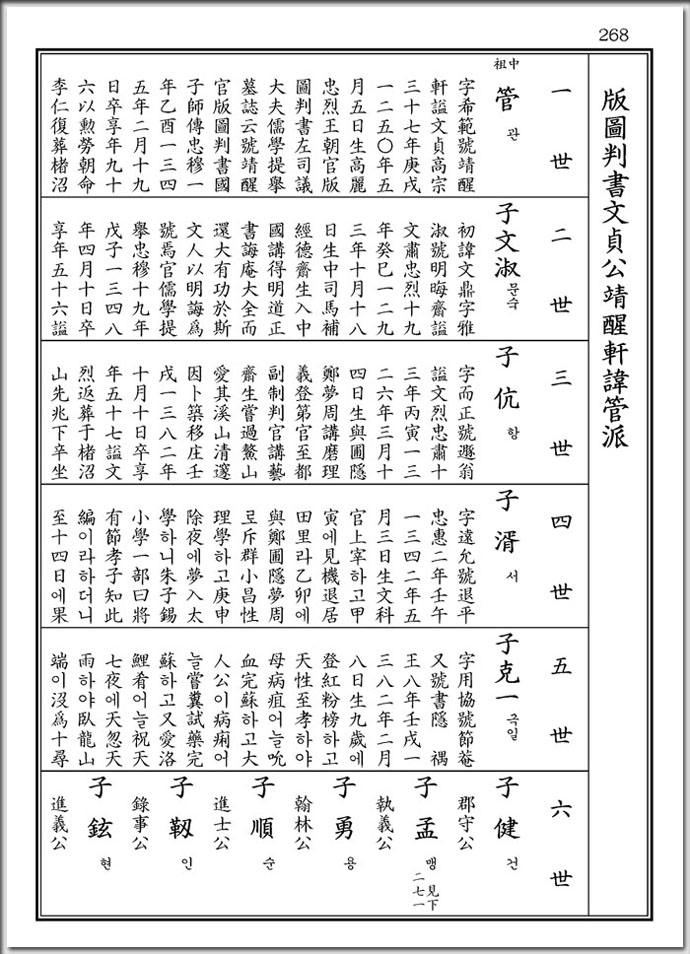 268
版圖判書文貞公靖醒軒諱管派
一世
中祖
管 관
字希範號靖醒
軒謚文貞高宗
三十七年庚戌
一二五〇年五
月五日生高麗
忠烈王朝官版
圖判書左司議
大夫儒學提擧
墓誌云號靖醒
官版圖判書國
子師傳忠穆一
年乙酉一三四
五年二月十九
日卒享年九十
六以勳勞朝命
李仁復葬楮沼
二世
子文淑 문숙
初諱文鼎字雅
淑號明晦齋謚
文肅忠烈十九
年癸巳一二九
三年十月十八
日生中司馬補
經德齋生入中
國講得明道正
書誨庵大全而
還大有功於斯
文人以明誨爲
號焉官儒學提
擧忠穆十九年
戊子一三四八
年四月十日卒
享年五十六謚
三世
子伉 항
字而正號遯翁
謚文烈忠肅十
三年丙寅一三
二六年三月十
四日生與圃隱
鄭夢周講磨理
義登第官至都
副制判官講藝
齋生嘗過鰲山
愛其溪山清邃
因卜築移庄壬
戌一三八二年
十月十日卒享
年五十七謚文
烈返葬于楮沼
山先兆下辛坐
四世
子湑 서
字遠允號退平
忠惠二年壬午
一三四二年五
月三日生文科
官上宰하고甲
寅에見機退居
田里라乙卯에
與鄭圃隱夢周
로斥群小昌性
理學하고庚申
除夜에夢入太
學하니朱子錫
小學一部曰將
有節孝子知此
編이라하더니
至十四日에果
五世
子克一 극일
字用協號節菴
又號書隱 禑
王八年壬戌一
三八二年二月
八日生九歲에
登紅粉榜하고
天性至孝하야
母病疽어늘吮
血完蘇하고大
人公이病痢어
늘嘗糞試藥完
蘇하고又愛洛
鯉肴어늘祝天
七夜에天忽天
雨하야臥龍山
端이沒爲十尋
六世
子健 건
郡守公
子孟 맹 見下二七一
執義公
子勇 용
翰林公
子順 순
進士公
子靱 인
錄事公
子鉉 현
進義公